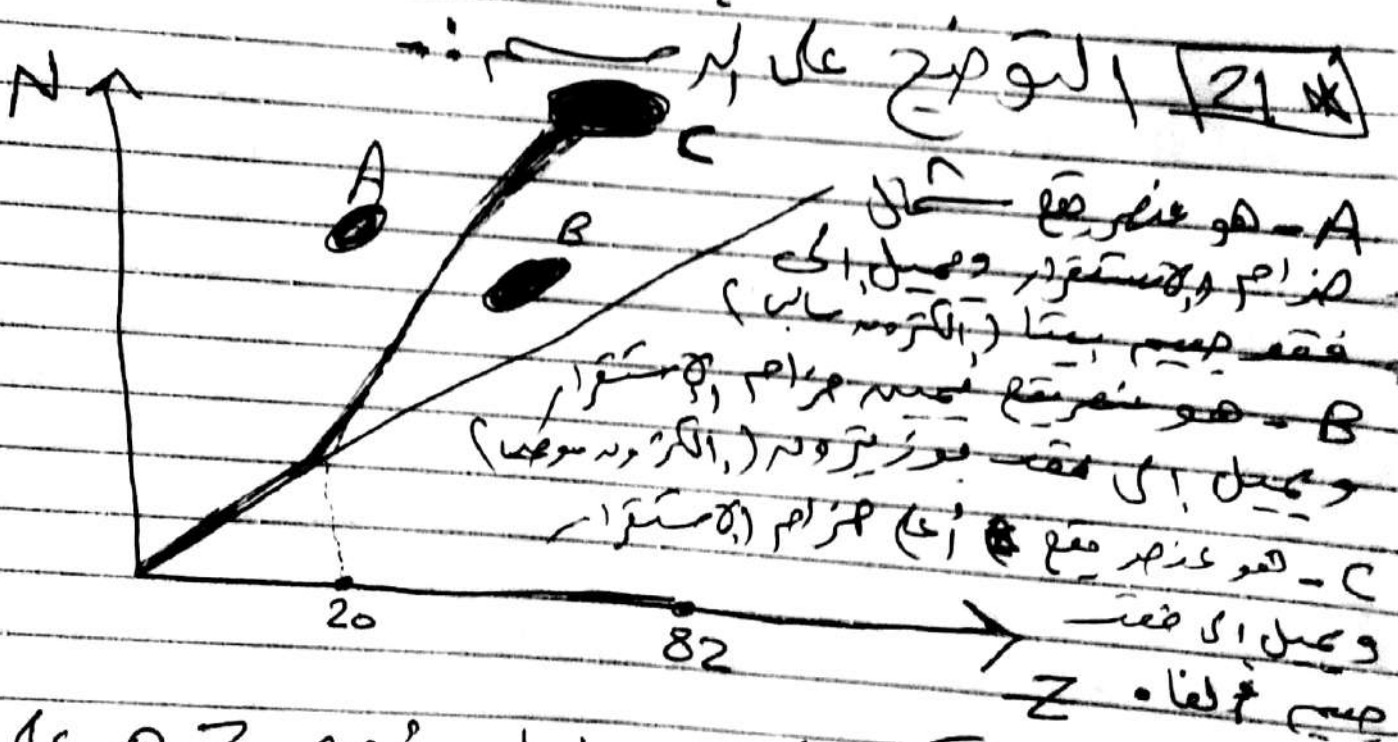 21 * التوضيح على الرسم :-
N
A
C
B
A - هو عنصر يقع شمال
حزام الاستقرار ويميل إلى
فقد جسيم بيتا (إلكترون سالب)
B - هو عنصر يقع يمين حزام الاستقرار
ويميل إلى فقد بوزيترون (إلكترون موجب)
C - هو عنصر يقع أعلى حزام الاستقرار
ويميل إلى فقد
جسيم ألفا .
20
82
Z